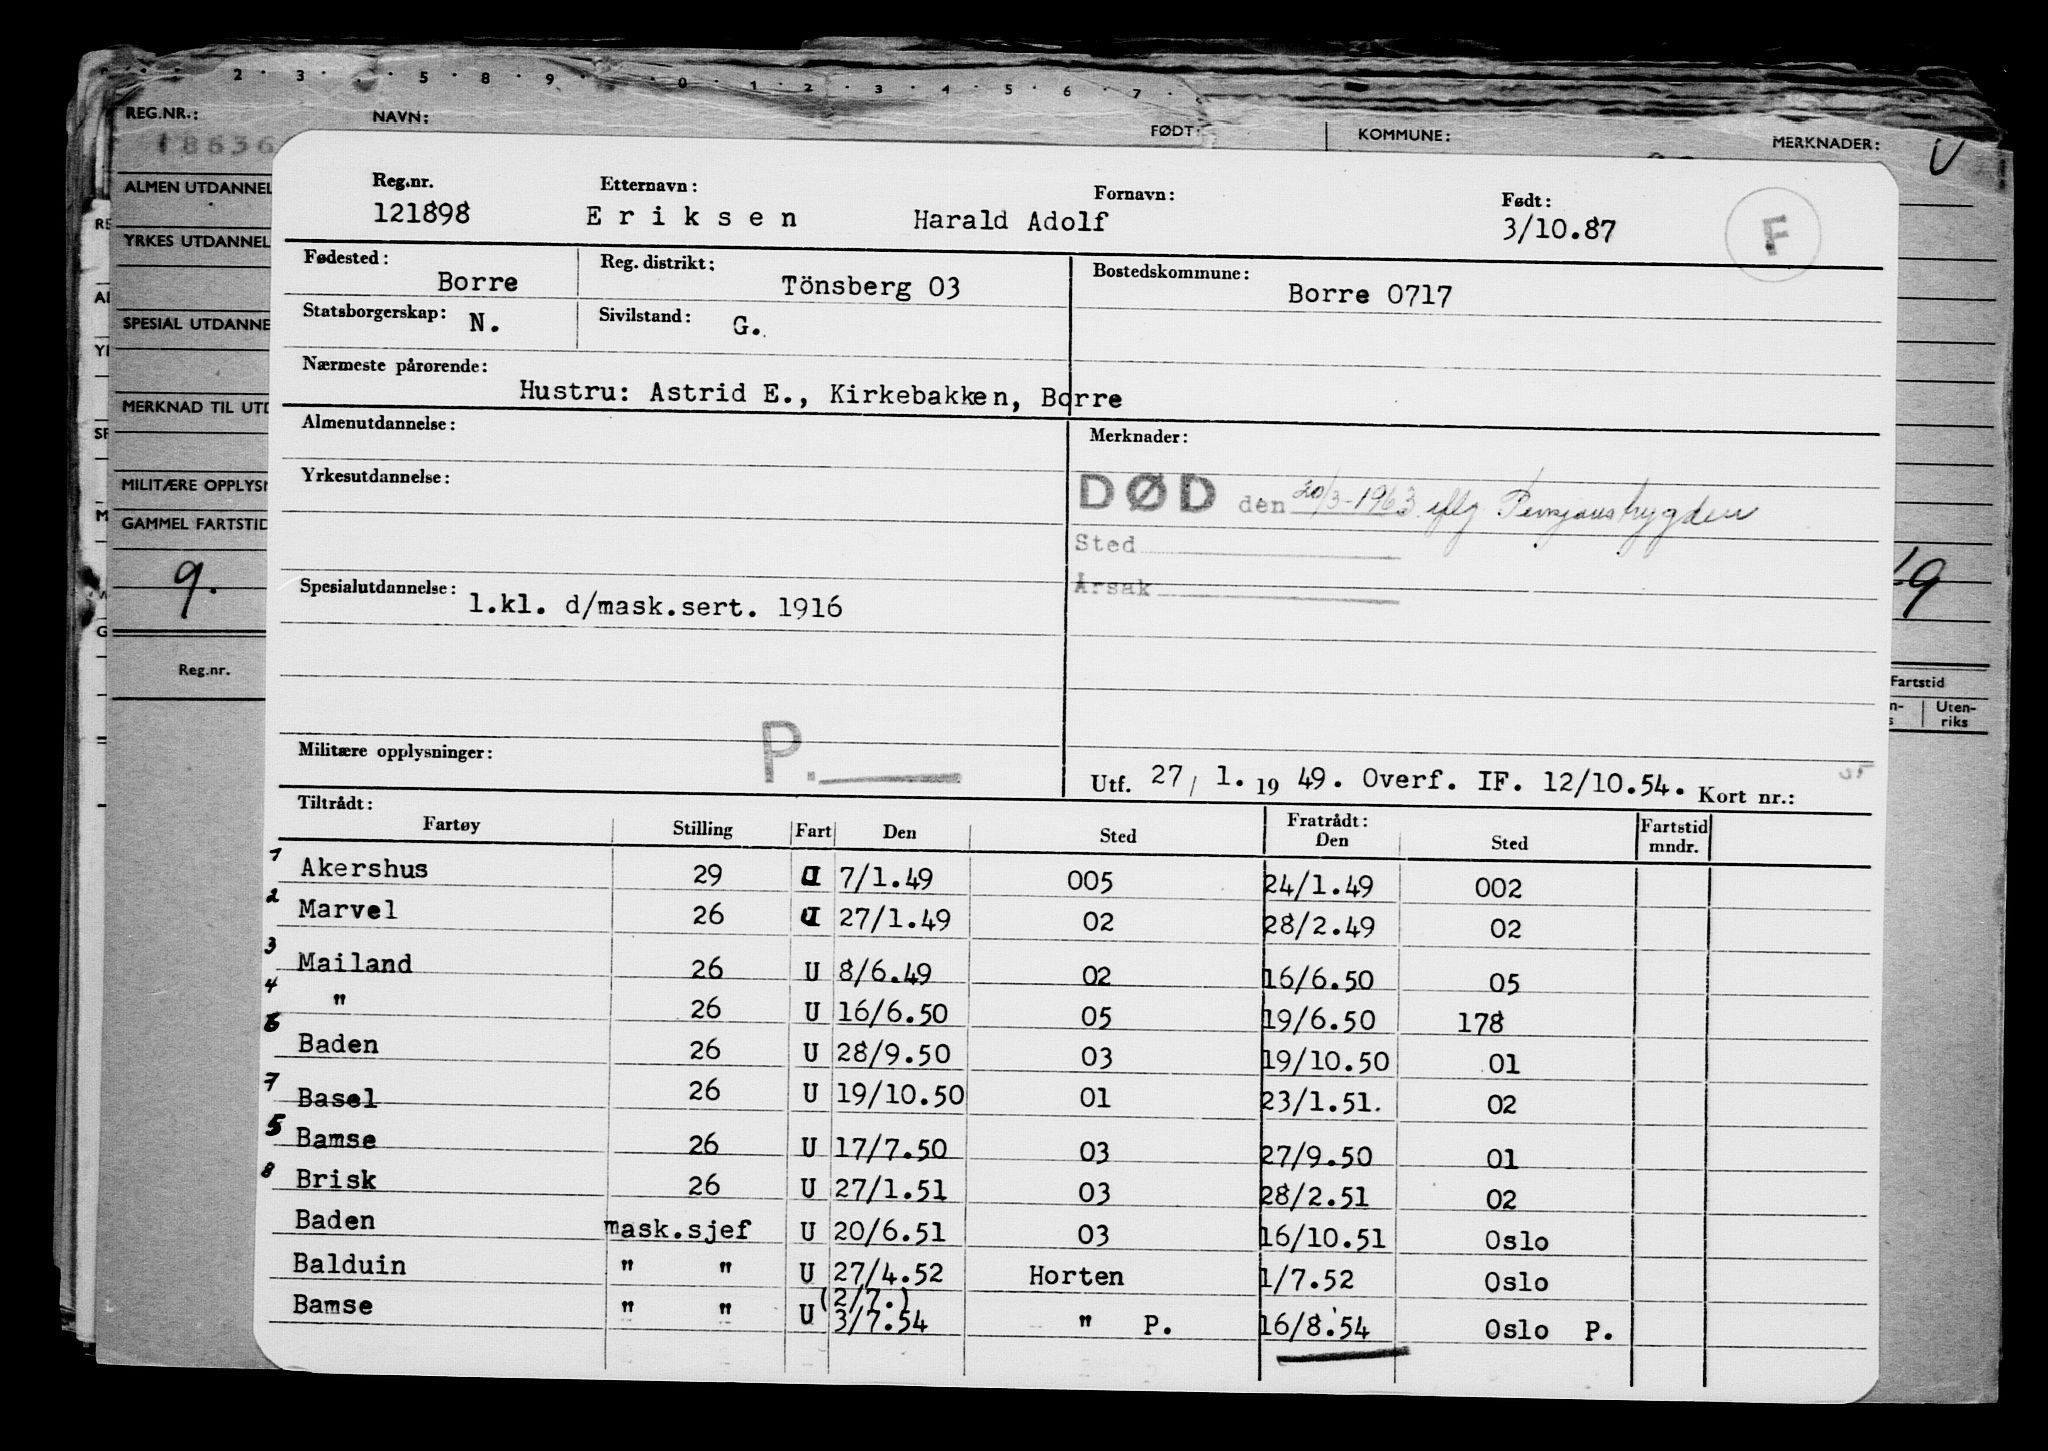 2 · 3 · 5 · 8 · 9 · 0 · 1 · 2 · 3 · 4 · 5 · 6 · 7 ·
REG.NR.: NAVN: FØDT: KOMMUNE: MERKNADER: V
18636
ALMEN UTDANNEL
YRKES UTDANNEL
SPESIAL UTDANNE
MERKNAD TIL UTD
MILITÆRE OPPLYSN
GAMMEL FARTSTID
9. 19
Reg.nr. Fartstid
Uten-
riks
Reg.nr. Etternavn: Fornavn: Født:
121898 Eriksen Harald Adolf 3/10.87 F
Fødested: Borre Reg. distrikt: Tönsberg 03 Bostedskommune: Borre 0717
Statsborgerskap: N. Sivilstand: G.
Nærmeste pårørende:
Hustru: Astrid E., Kirkebakken, Borre
Almenutdannelse: Merknader:
Yrkesutdannelse:
DØD den 20/3-1963 iflg Pensjonstrygden
Sted
Årsak
Spesialutdannelse: 1.kl. d/mask.sert. 1916
Militære opplysninger: P.
Utf. 27/ 1. 19 49. Overf. IF. 12/10.54. Kort nr.:
Tiltrådt: Fratrådt:
Fartøy Stilling Fart Den Sted Den Sted Fartstid mndr.
1 Akershus 29 U 7/1.49 005 24/1.49 002
2 Marvel 26 U 27/1.49 02 28/2.49 02
3 Mailand 26 U 8/6.49 02 16/6.50 05
4 " 26 U 16/6.50 05 19/6.50 178
6 Baden 26 U 28/9.50 03 19/10.50 01
7 Basel 26 U 19/10.50 01 23/1.51. 02
5 Bamse 26 U 17/7.50 03 27/9.50 01
8 Brisk 26 U 27/1.51 03 28/2.51 02
Baden mask.sjef U 20/6.51 03 16/10.51 Oslo
Balduin " " U 27/4.52 Horten 1/7.52 Oslo
(2/7.)
Bamse " " U 3/7.54 " P. 16/8.54 Oslo P.